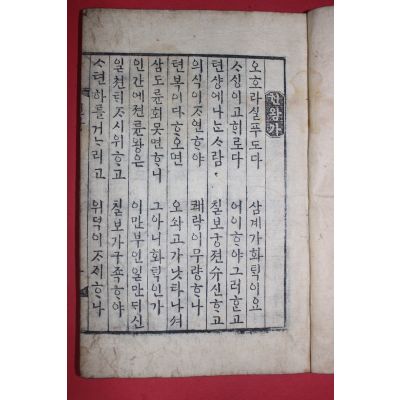 권왕가
오호라실푸도다 삼계가화ᄐᆡᆨ이요
ᄉᆞᄉᆡᆼ이고ᄒᆡ로다 어이ᄒᆞ야그러ᄒᆞᆫ고
텬샹에나ᄂᆞᆫᄉᆞ람 칠보궁젼슈신ᄒᆞ고
의식이ᄌᆞ연ᄒᆞ야 쾌락이무량ᄒᆞ나
텬복이다ᄒᆞ오면 오쇠고가낫타나셔
삼도륜회못면ᄒᆞ니 그아니화ᄐᆡᆨ인가
인간에젼륜왕은 이만부인일만ᄃᆡ신
일쳔ᄐᆡᄌᆞ시위ᄒᆞ고 칠보가구족ᄒᆞ야
ᄉᆞ텬하를거ᄂᆞ리고 위덕이ᄌᆞᄌᆡᄒᆞ나